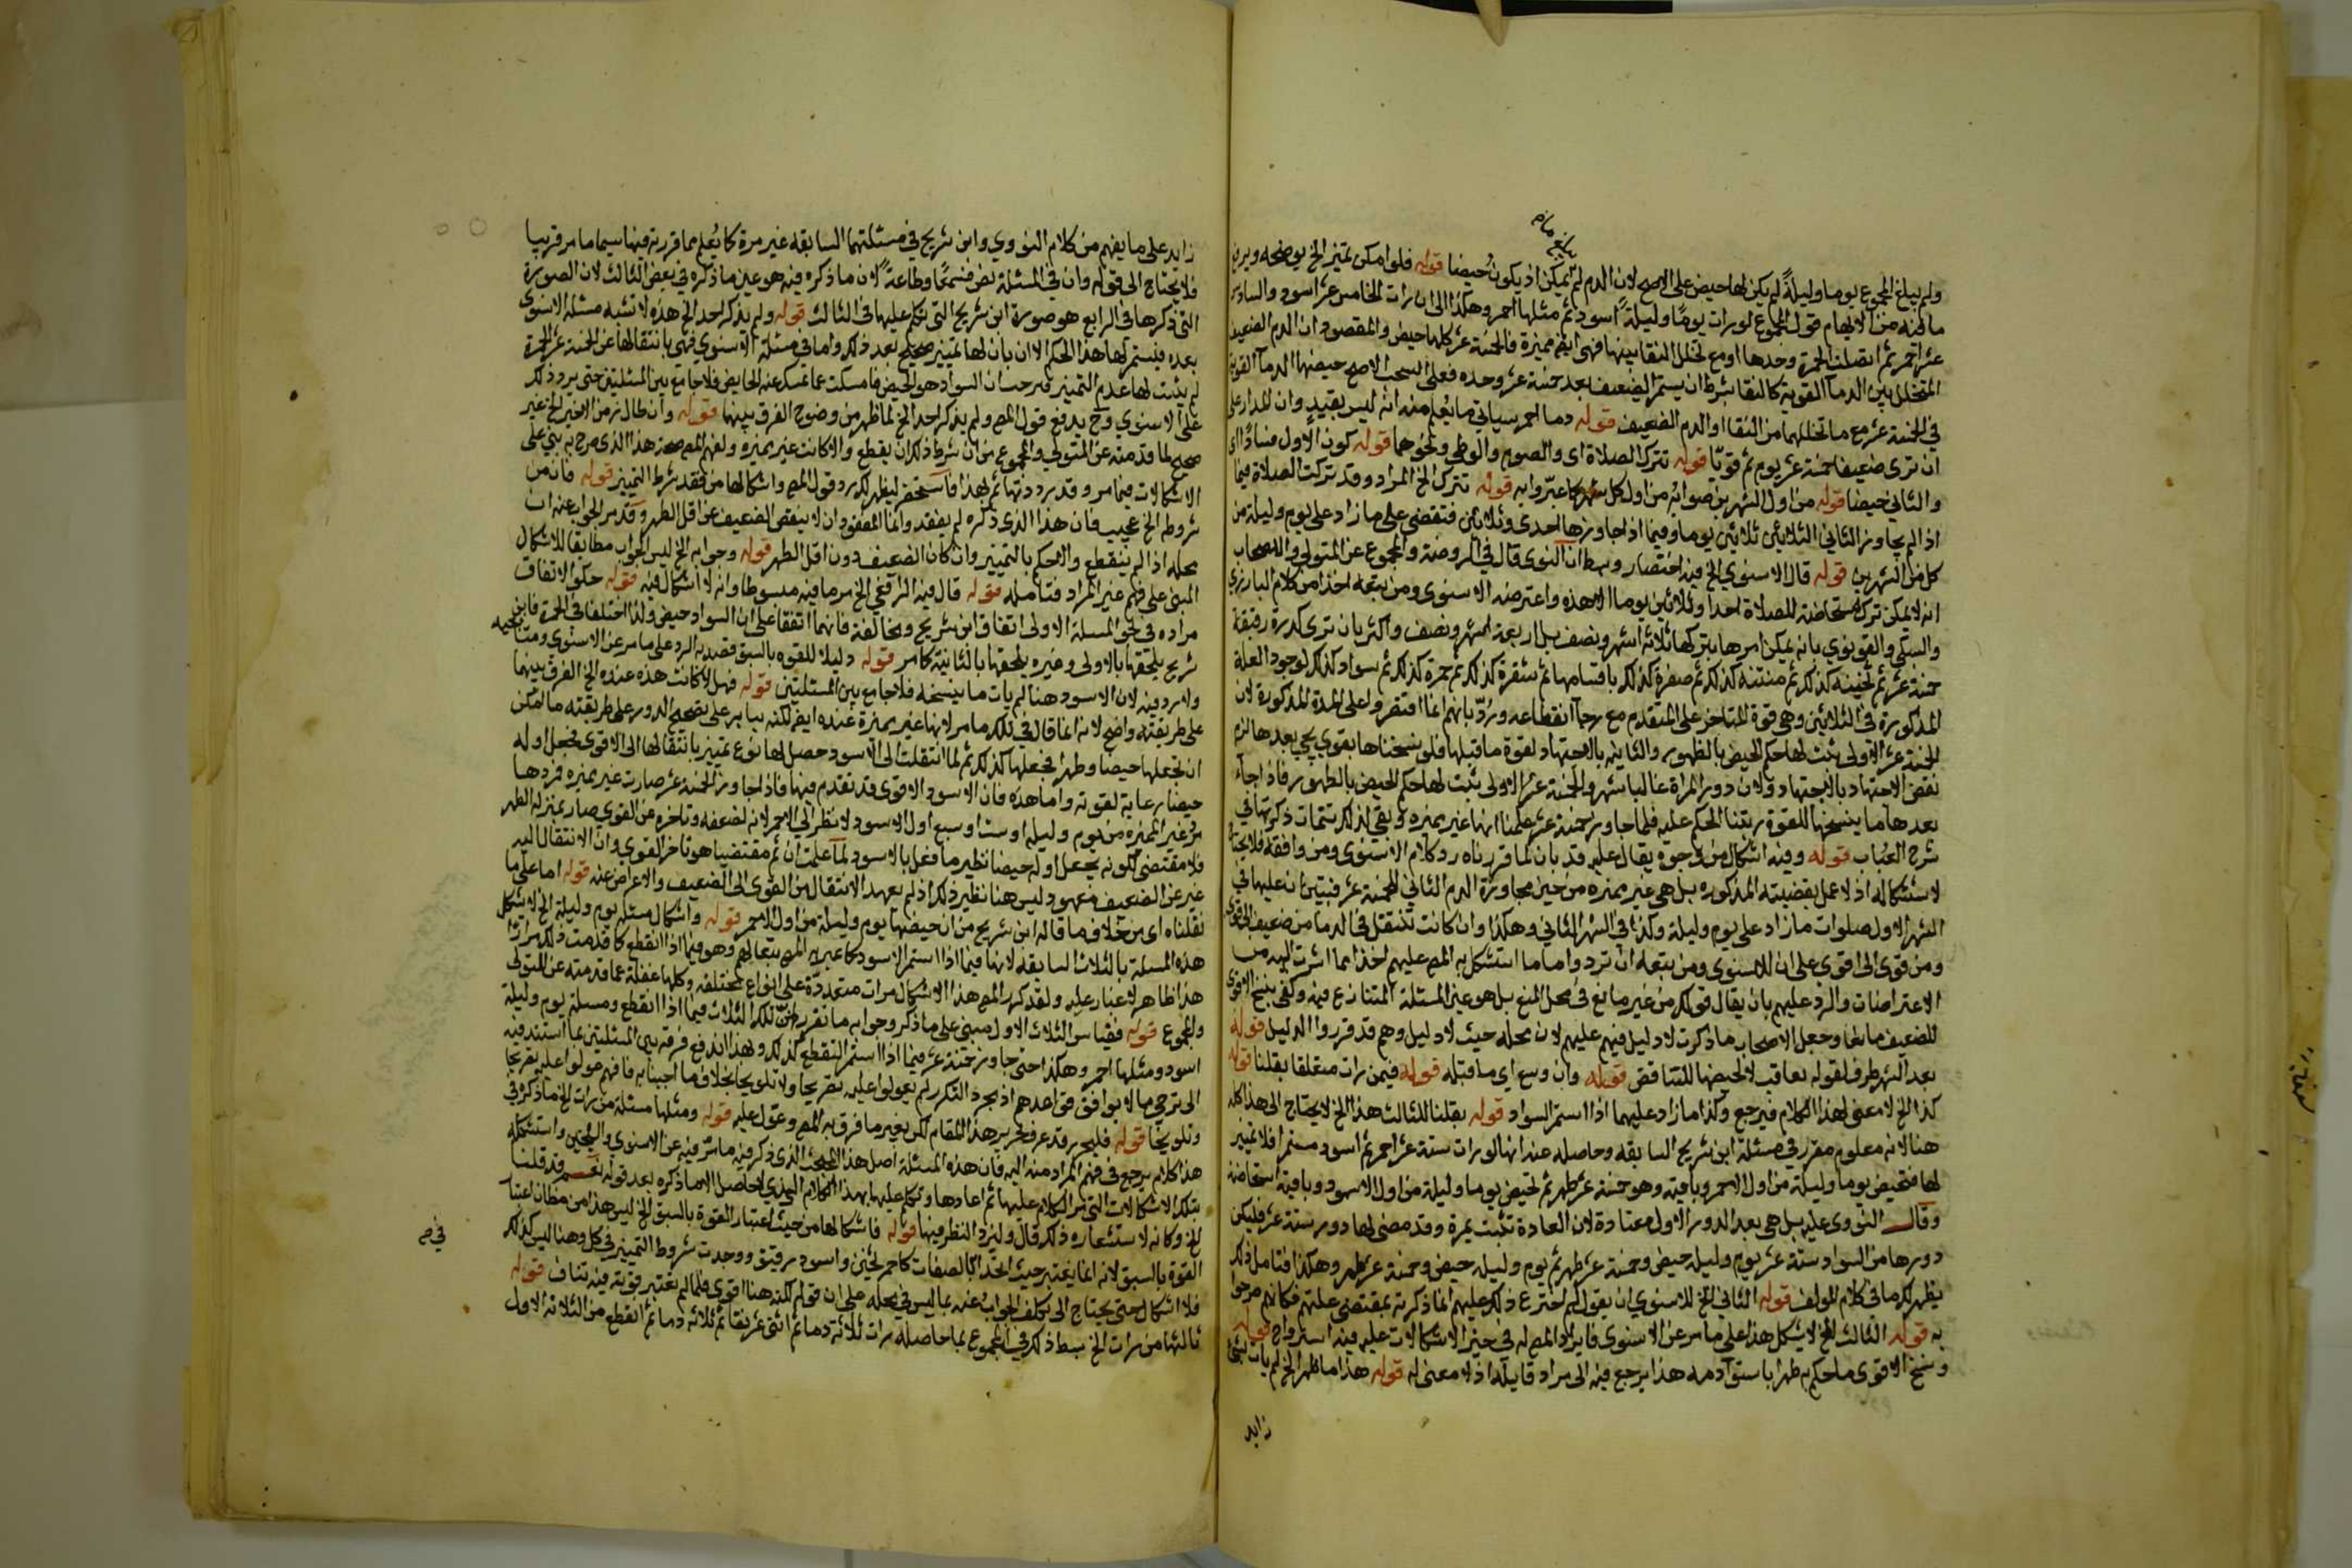 ولم يبلغ المجموع يوما وليلة لم يكن لها حيض على الاصح لان الدم لم يمكن اذ يكون حيضا قوله فلو امكن تميز الخ يوضحه ويزيل
ما فيه من الابهام قول المجموع لورات يوما وليلة اسود ثم مثلها احمر وهكذا الى ان رات الخامس عشر اسود والسادس
عشر احمر ثم اتصلت الحمرة وحدها او مع تخلل النقا بينها فهى ايضا مميزة فالخمسة عشر كلها حيض والمقصود ان الدم الضعيف
المتخلل بين الدما القوية كالنقا بشرط ان يستمر الضعيف بعد خمسة عشر وحده فعلى السحب الاصح حيضها الدما القوية
في الخمسة عشر مع ما تخللهما من النقا او الدم الضعيف قوله دما احمر سياتي ما يعلم منه انه ليس بقيد وان المدار على
ان ترى ضعيفا خمسة عشر يوم ثم قويا قوله تترك الصلاة اى والصوم والوطى ونحوهما قوله كون الاول فسادا اى
والثاني حيضا قوله من اول الشهرين صوابه من اول كل شهر كما عبروا به قوله تترك الخ المراد وقد تركت الصلاة فيما
اذا لم يجاوز الثاني الثلاثين ثلاثين يوما وفيما اذا جاوزها احدى وثلاثين فتقضى على ما زاد على يوم وليلة من
كل من الشهرين قوله قال الاسنوي الخ فيه اختصار وبسط ان النووى قال في الروضة والمجموع عن المتولي والاصحاب
انه لا يمكن ترك مستحاضة للصلاة احدا وثلاثين يوما الا هذه واعترضه الاسنوى ومن تبعه اخذا من كلام البارزى
والسبكي والقونوي بانه يمكن امرها بتركها ثلاثة اشهر ونصف بل اربعة اشهر ونصف واكثر بان ترى كدرة رقيقة
خمسة عشر ثم ثخينه كذلك ثم منتنه كذلك ثم صفرة كذلك باقسامها ثم شقرة كذلك ثم حمرة كذلك ثم سواد كذلك لوجود العلة
المذكورة في الثلاثين وهى قوة المتاخر على المتقدم مع رجاء انقطاعه ورد بانهم انما اقتصروا على المدة المذكورة لان
الخمسة عشر الاولى يثبت لها حكم الحيض بالظهور والثانيه بالاجتهاد لقوة ما قبلها فلو نسخناها بقوي يجي بعدها لزم
نقض الاجتهاد بالاجتهاد ولان دور المراة غالبا شهر والخمسة عشر الاولى يثبت لها حكم الحيض بالظهور فاذا جاء
بعدها ما ينسخها للقوة رتبنا الحكم عليه فلما جاوز خمسة عشر علمنا انها غير مميزه وبقي لذلك تتمات ذكرتها في
شرح العباب قوله وفيه اشكال من وجوه يقال عليه قد بان لما قررناه رد كلام الاسنوى ومن وافقه فلا يحتاج
لاستشكاله اذ لا عمل بقضيته المذكوره بل هي غير مميزه من حين مجاوزة الدم الثاني الخمسة عشر فتبين ان عليها في
الشهر الاول صلوات ما زاد على يوم وليلة وكذا في الشهر الثاني وهكذا وان كانت تنتقل في الدما من ضعيف الى قوى
ومن قوى الى اقوى على ان للاسنوى ومن تبعه ان تردوا ما ما استشكل به المص عليهم اخذا مما اشرت اليه من
الاعتراضات والرد عليهم بان يقال قولك من غير مانع في محل المنع بل هو عين المسئلة المتنازع فيه وكفى بنسخ الاقوى
للضعيف مانعا وجعل الاصحاب ما ذكرت لا دليل فيهم عليهم لان محله حيث لا دليل وهم قد قرروا الدليل قوله
بعد الشهر ظرف لقوله يعاقب لا لحيضها للتناقض قوله وان وسع اى ما قبله قوله فيمن رات متعلقا بقلنا قوله
كذا الخ لا معنى لهذا الكلام فيرجع وكذا ما زاد عليهما اذا استمر السواد قوله بقلنا للثالث هذا الخ لا يحتاج الى هذا كله
هنا لانه معلوم مقرر في مسئلة ابن شريح السابقه وحاصله عنه انها لو رات ستة عشر احمر ثم اسود مستمرا فلا تمييز
لها فتحيض يوما وليلة من اول الاحمر وباقيه وهو خمسة عشر طهر ثم تحيض يوما وليلة من اول الاسود وباقيه استحاضة
وقال النووى عليه بل هى بعد الدور الاول معتادة لان العادة تثبت بمرة وقد مضى لها دور ستة عشر فليكن
دورها من السواد ستة عشر يوم وليله حيض وخمسة عشر طهر ثم يوم وليله حيض وخمسة عشر طهر وهكذا فتامل ذلك
يظهر لك ما في كلام المولف قوله الثاني الخ للاسنوي ان يقول لم اخترع ذلك عليهم انما ذكرته بمقتضى علتهم فكانهم صرحوا
به قوله الثالث الخ لا يشكل هذا على ما مر عن الاسنوى فايراد المص له في حيز الاشكالات عليه فيه استرواح قوله
ونسخ الاقوى ما حكم به طهرا باسبق ادمه هذا يرجع فيه الى مراد قايله اذ لا معنى له قوله هذا ما ظهر الخ لم يات بشى
زايد
زايد على ما يفهم من كلام النووى وابن شريح في مسئلتهما السابقه غير مرة كما يعلم مما قررته فيها سيما ما مر قريبا
فلا يحتاج الى قوله وان في المسئلة نص فسمعا وطاعة لان ما ذكره فيه هو عين ما ذكره في بعض الثالث لان الصورة
التي ذكرها في الرابع هو صورة ابن شريح التي تكلم عليها في الثالث قوله ولم يذكر احد الخ هذه لا تشبه مسئلة الاسنوى
بعده فيستمر لها هذا الحكم الا ان بان لها تمييز صحيح بعد ذلك واما في مسئلة الاسنوي فهى بانتقالها عن الخمسة عشر الحمرة
لم يثبت لها عدم التمييز فرجت ان السواد هو الحيض فامسكت عما تمسك عنه الحايض فلا جامع بين المسئلتين حتى يرد ذلك
على الاسنوي وح يدفع قول المص ولم يذكر احد الخ لما ظهر من وضوح الفرق بينهما قوله وان طال زمن الاخير الخ غير
صحيح لما قدمته عن المتولي والمجموع من ان شرط ذلك ان يقطع والا كانت غير مميزه ولفهم المص صحة هذا الذى صرح به بنى على
الاشكالات فيما مر وقد رددتها ثم بهذا فاستحضره ليظهر لك رد قول المص واشكالها من فقد شرط التمييز قوله فان من
شروطه الخ عجيب فان هذا الذى ذكره لم يفقد وانما المفقود ان لا ينقص الضعيف عن اقل الطهر وقد مر الجواب عنه ان
محله اذا لم ينقطع والا حكم بالتمييز وان كان الضعيف دون اقل الطهر قوله وجوابه الخ ليس الجواب مطابقا للاشكال
المبنى على فهم غير المراد فتامله قوله قال فيه الرافعي الخ مر ما فيه مبسوطا وانه لا اشكال فيه قوله حكوا الاتفاق
مراده في نحو المسئلة الاولى اتفاق ابن شريح ومخالفة فانهما اتفقا على ان السواد حيض ولذا اختلفا في الحمرة فابن
شريح يلحقها بالاولى وغيره يلحقها بالثانية كما مر قوله دليلا للقوه بالسبق قصد به الرد على ما مر عن الاسنوى ومتابعيه
ولا رد فيه لان الاسود هنا لم يات ما ينسخه فلا جامع بين المسئلتين قوله فهل لا كانت هذه عنده الخ الفرق بينهما
على طريقته واضح لانه انما قال في تلك ما مر لانها غير مميزة عنده ايضا لكنه يبابر على تصحيح الدور على طريقته ما امكن
ان نجعلها حيضا وطهرا فجعلها كذلك ثم لما انتقلت الى الاسود حصل لها نوع تمييز بانتقالها الى الاقوى فجعل اوله
حيضا رعاية لقوته واما هذه فان الاسود الاقوى قد تقدم فيها فاذا جاوز الخمسة عشر صارت غير مميزه فردها
مرد غير المميزه من يوم وليله او ست او سبع اول الاسود لا نظر الى الاحمر لانه لضعفه وتاخره عن القوى صار بمنزلة الطهر
فلا مقتضى لكونه يجعل اوله حيضا نظير ما فعل بالاسود لما علمت ان ثم مقتضيا هو تاخر القوى وان الانتقال اليه
عنه عن الضعيف معهود وليس هنا نظير ذلك اذ لم يعهد الانتقال من القوى الى الضعيف والاعراض عنه قوله اما على ما
نقلناه اى من خلاف ما قاله ابن شريح من ان حيضها يوم وليلة من اول الاحمر قوله واشكال مسئلة يوم وليلة الخ لا تشكل
هذه المسئلة بالثلاث السابقه لانها فيما اذا استمر الاسود كما عبر به المص تبعا لهم وهو فيما اذا انقطع كما قدمت ذلك مرارا
هذا ظاهر لا غبار عليه ولقد كرر المص هذا الاشكال مرات متعددة على انواع مختلفه وكلها غفلة عما قدمته عن المتولي
والمجموع قوله فقياس الثلاث الاول مبنى على ما ذكر وجوابه ما تقرر ان تلك الثلاث فيما اذا انقطع ومسئلة يوم وليلة
اسود ومثلها احمر وهكذا حتى جاوز خمسة عشر فيما اذا استمر التقطع كذلك وبهذا اندفع فرقه بين المسئلتين بما استند فيه
الى ترجي ما لا يوافق قواعدهم اذ مجرد التكرر لم يعولوا عليه تصريحا ولا تلويحا بخلاف ما اجبنا به فافهم عولوا عليه تصريحا
وتلويحا قوله فليحرر قد عرف تحرير هذا المقام لكن بغير ما فرق به المص وعول عليه قوله ومثلها مسئلة من رات الخ ما ذكر في
هذا كلام يرجع في فهم المراد منه اليه فان هذه المسئلة اصل هذا المبحث الذى ذكر فيه ما مر فيه عن الاسنوى والشيخين واستشكله
بتلك الاشكالات التي مر الكلام عليها ثم اعادها وتكلم عليها بهذا الكلام الذي لا حاصل الا ما ذكره بعد قوله نعم قد قلنا
الخ وكانه لاستشعاره ذلك قال وليزد النظر فيها قوله فاشكالها من حيث اعتبار القوة بالسبق الخ ليس هذا من مظان اعتبار
القوة بالسبق لانه انما يعتبر حيث اتحدا كالصفات كاحمر ثخين واسود رقيق ووجدت شروط التمييز في كل وهنا ليس كذلك
فلا اشكال حتى يحتاج الى تكلف الجواب عنه بما ليس في محله على ان قولهم لكنه هنا اقوى فلما لم يعتبر قوته فيه تناف قوله
ثالثها من رات الخ بسط ذلك في المجموع بما حاصله رات ثلاثة دما ثم اثنى عشر نقا ثم ثلاثة دما ثم انقطع من الثلاثة الاول